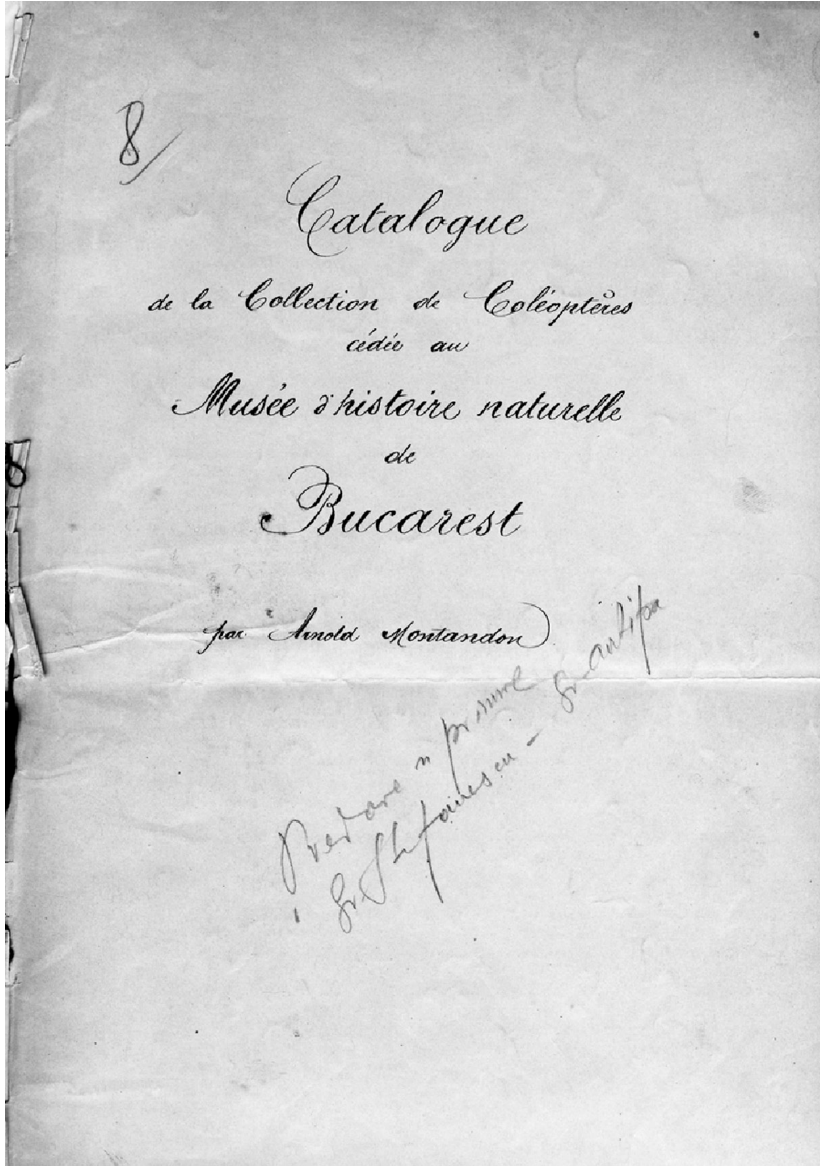 8/
Catalogue
de la Collection de Coléoptères
cédée au
Musée d'histoire naturelle
de
Bucarest
par Arnold Montandon
Predare n primire
Gr. Stefanescu - Gr. Antipa